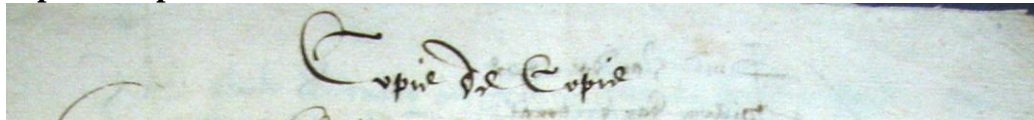 Copie de Copie